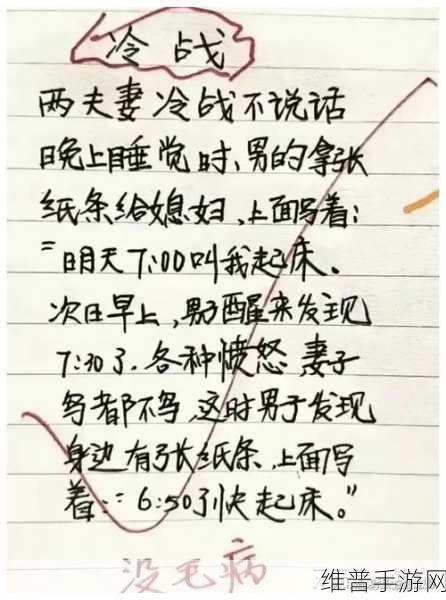 冷战
两夫妻冷战不说话
晚上睡觉时、男的拿张
纸条给媳妇,上面写着:
"明天7:00叫我起床。
次日早上,男子醒来发现
7:30了.各种愤怒,妻子
鸟都不鸟,这时男子发现
身边有张纸条,上面写
着:"6:50了快起床。"
没毛病
维普手游网